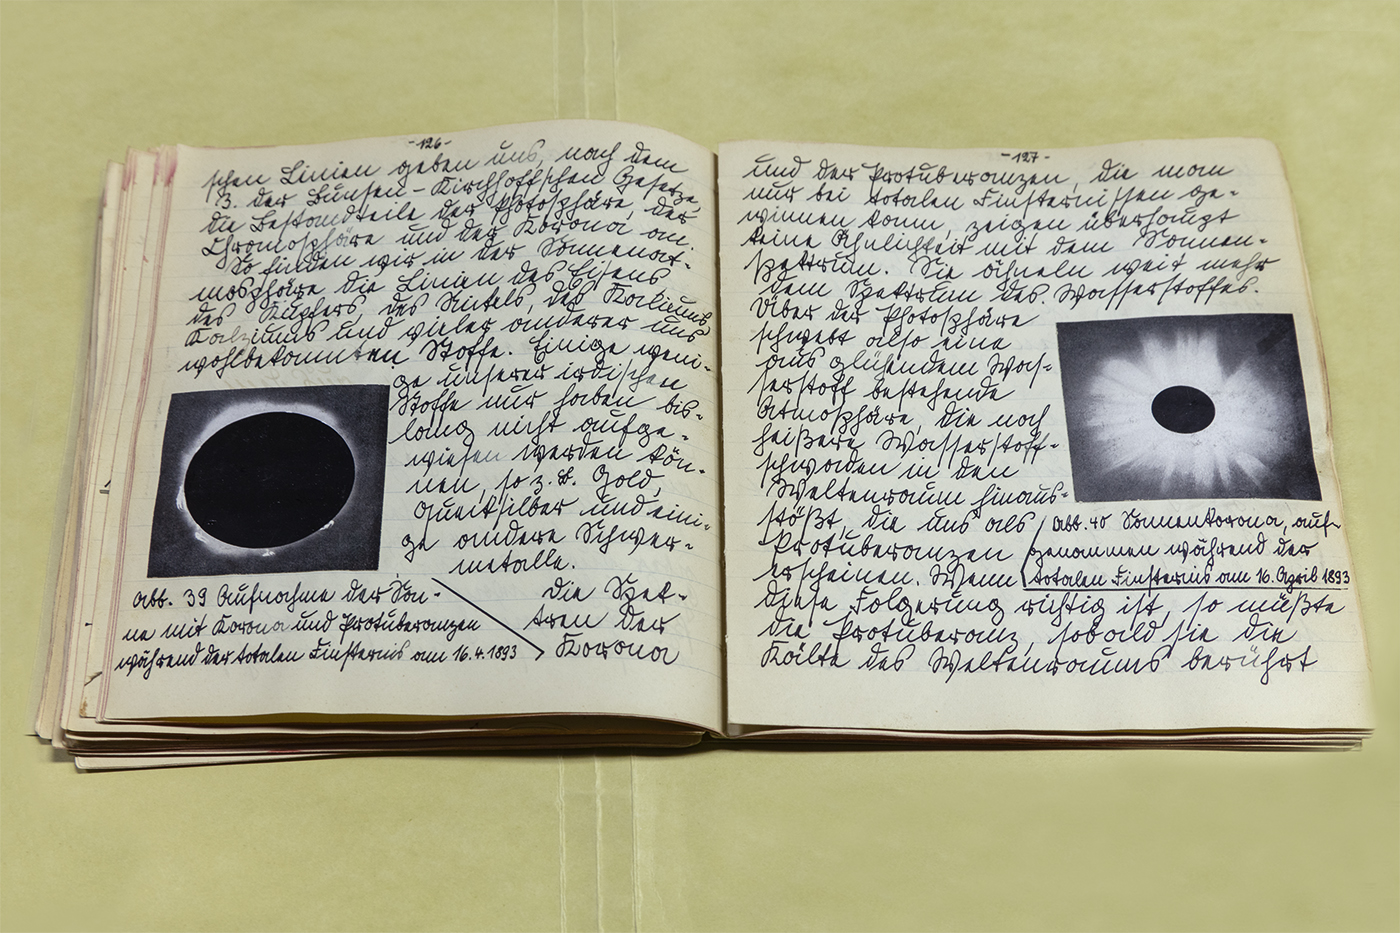 - 126 -
schen Linien geben uns, nach dem
3. der Bunsen-Kirchhoffschen Gesetze,
die Bestandteile der Photosphäre, der
Chromosphäre und der Korona an.
So finden wir in der Sonnenat-
mosphäre die Linien des Eisens
des Kupfers, des Nikels, des Kaliums,
Kalziums und vieler anderer uns
wohlbekannten Stoffe. Einige weni-
ge unserer irdischen
Stoffe nur haben bis-
lang nicht aufge-
wiesen werden kön-
nen, so z.B. Gold,
Quecksilber und eini-
ge andere Schwer-
metalle.
Abb. 39 Aufnahme der Son-
ne mit Korona und Protuberanzen
während der totalen Finsternis am 16.4.1893
Die Spek-
tren der
Korona
- 127 -
und der Protuberanzen, die man
nur bei totalen Finsternissen ge-
winnen kann, zeigen überhaupt
keine Ähnlichkeit mit dem Sonnen-
spektrum. Sie ähneln weit mehr
dem Spektrum des Wasserstoffes.
Über der Photosphäre
schwebt also eine
aus glühendem Was-
serstoff bestehende
Atmosphäre, die noch
heißere Wasserstoff-
schwaden in den
Weltenraum hinaus-
stößt, die uns als
Protuberanzen
erscheinen. Wenn
Abb. 40 Sonnenkorona, auf-
genommen während der
totalen Finsternis am 16. April 1893
diese Folgerung richtig ist, so müßte
die Protuberanz, sobald sie die
Kälte des Weltenraums berührt